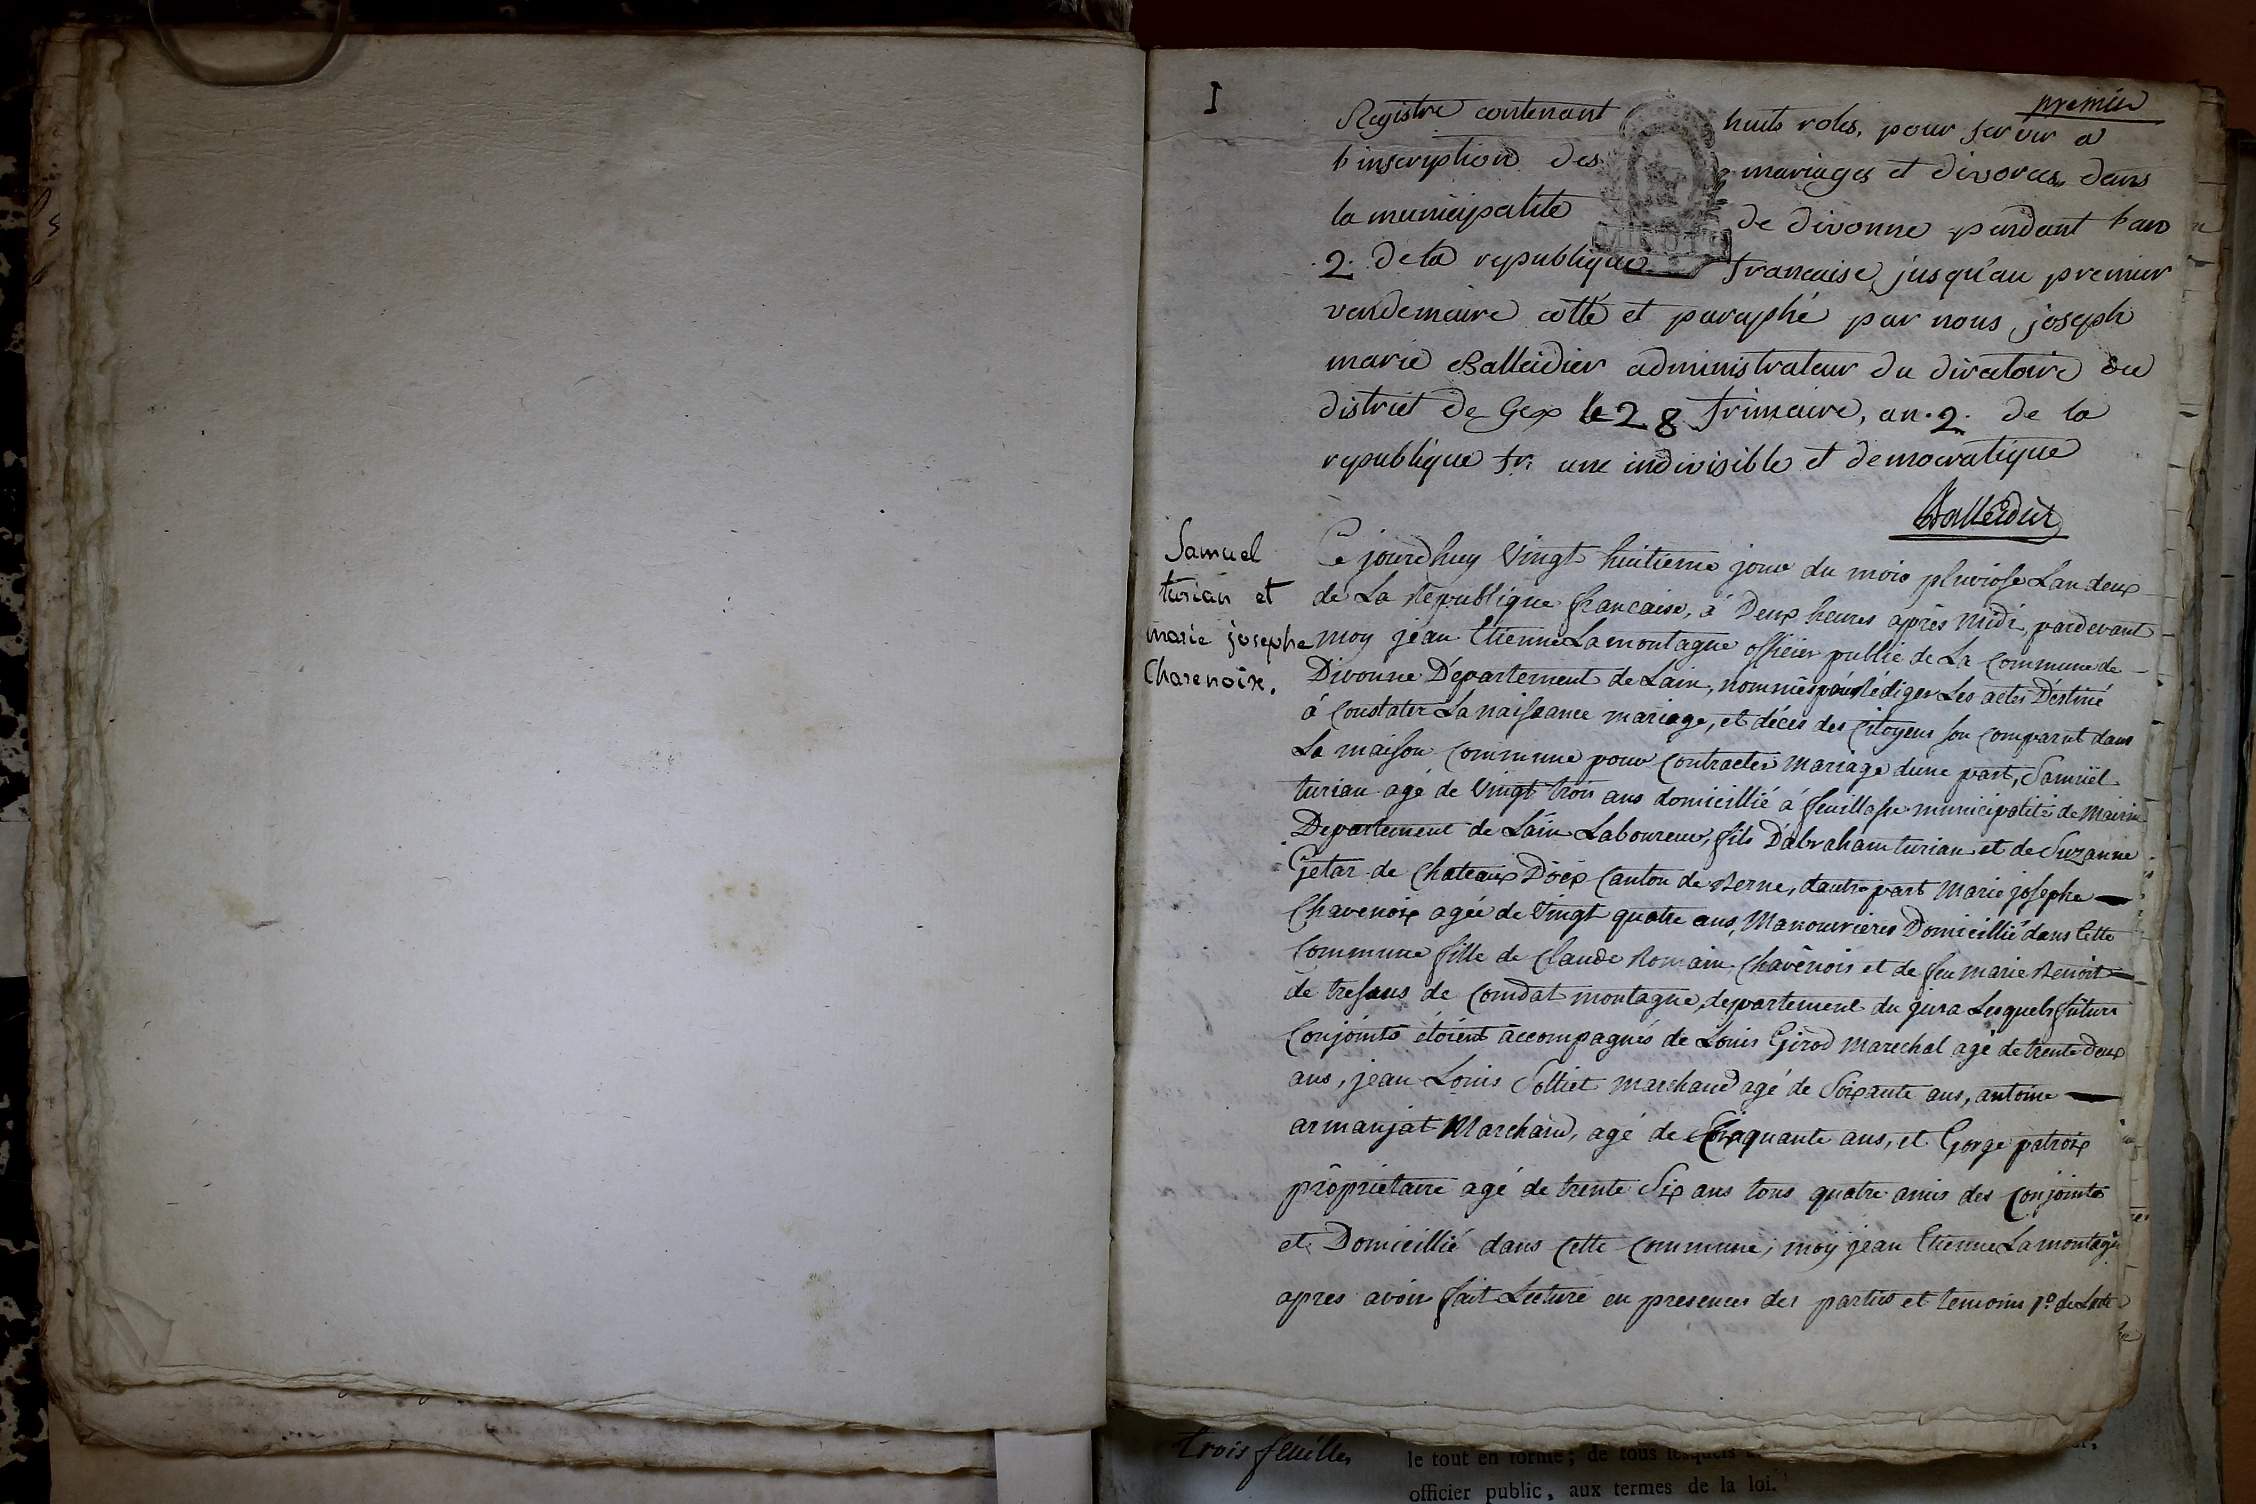 I
premier
Registre contenant huits roles, pour servir a
l'inscription des mariages et divorces dans
la municipalité de divonne pendant l'an
2. de la republique francaise, jusqu'au premier
vendemaire cotté et paraphé par nous, joseph
marie Balleidier administrateur du directoire du
district de Gex le 28 frimaire, an. 2. de la
republique fr. une indivisible et democratique
Balleidier
MINUTE
Samuel
turian et
marie josephe
Charenoix.
Ce jourdhuy Vingt huitieme jour du mois pluviose Lan deux
de La Republique francaise, à Deux heures après midi, pardevant
moy jean Etienne Lamontagne officier public de La Commune de
Divonne Département de Lain, nommé pour rédiger Les actes Déstiné
à Constater La naissance mariage, et décès des Citoyens son comparut dans
La maison Commune pour Contracter mariage dune part, Samuel
turian agé de Vingt trois ans domicillié à feuillasse municipalité de Mairin
Département de Láin Laboureur, fils D'abraham turian et de Suzanne
Getar de Chateaux Doex Canton de Berne, dautre part Marie josephe
Chavenoix agée de Vingt quatre ans, Manouvrieres Domicillié dans Cette
Commune fille de Claude Romain Chavênois et de feu marie Benoit
de tresaus de Condat montagne, departement du jura Lesquels futurs
Conjoints étoient accompagnés de Louis Girod marechal agé de trente Deux
ans, jean Louis Solliet marchand agé de Soixante ans, antoine
armanjat Marchand, agé de Cinquante ans, et Gorge patroix
propriétaire agé de trente Six ans tous quatre amis des Conjoints
et Domicillié dans Cette Commune; moy jean Etienne Lamontagn
apres avoir fait Lecture en presences des parties et temoins 1º. de Lacte
trois feuilles
le tout en forme; de tous lesquels
officier public, aux termes de la loi.